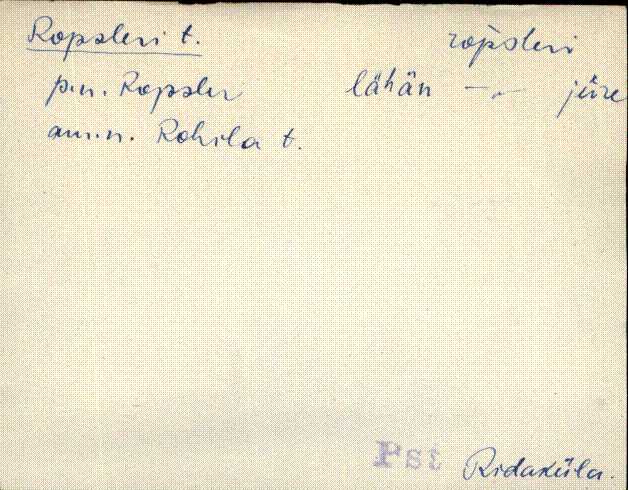 Ropsleri t. ropsleri
p.n. Ropsler lähän -„- jüre
am.n. Rohila t.
Pst Ridaküla.